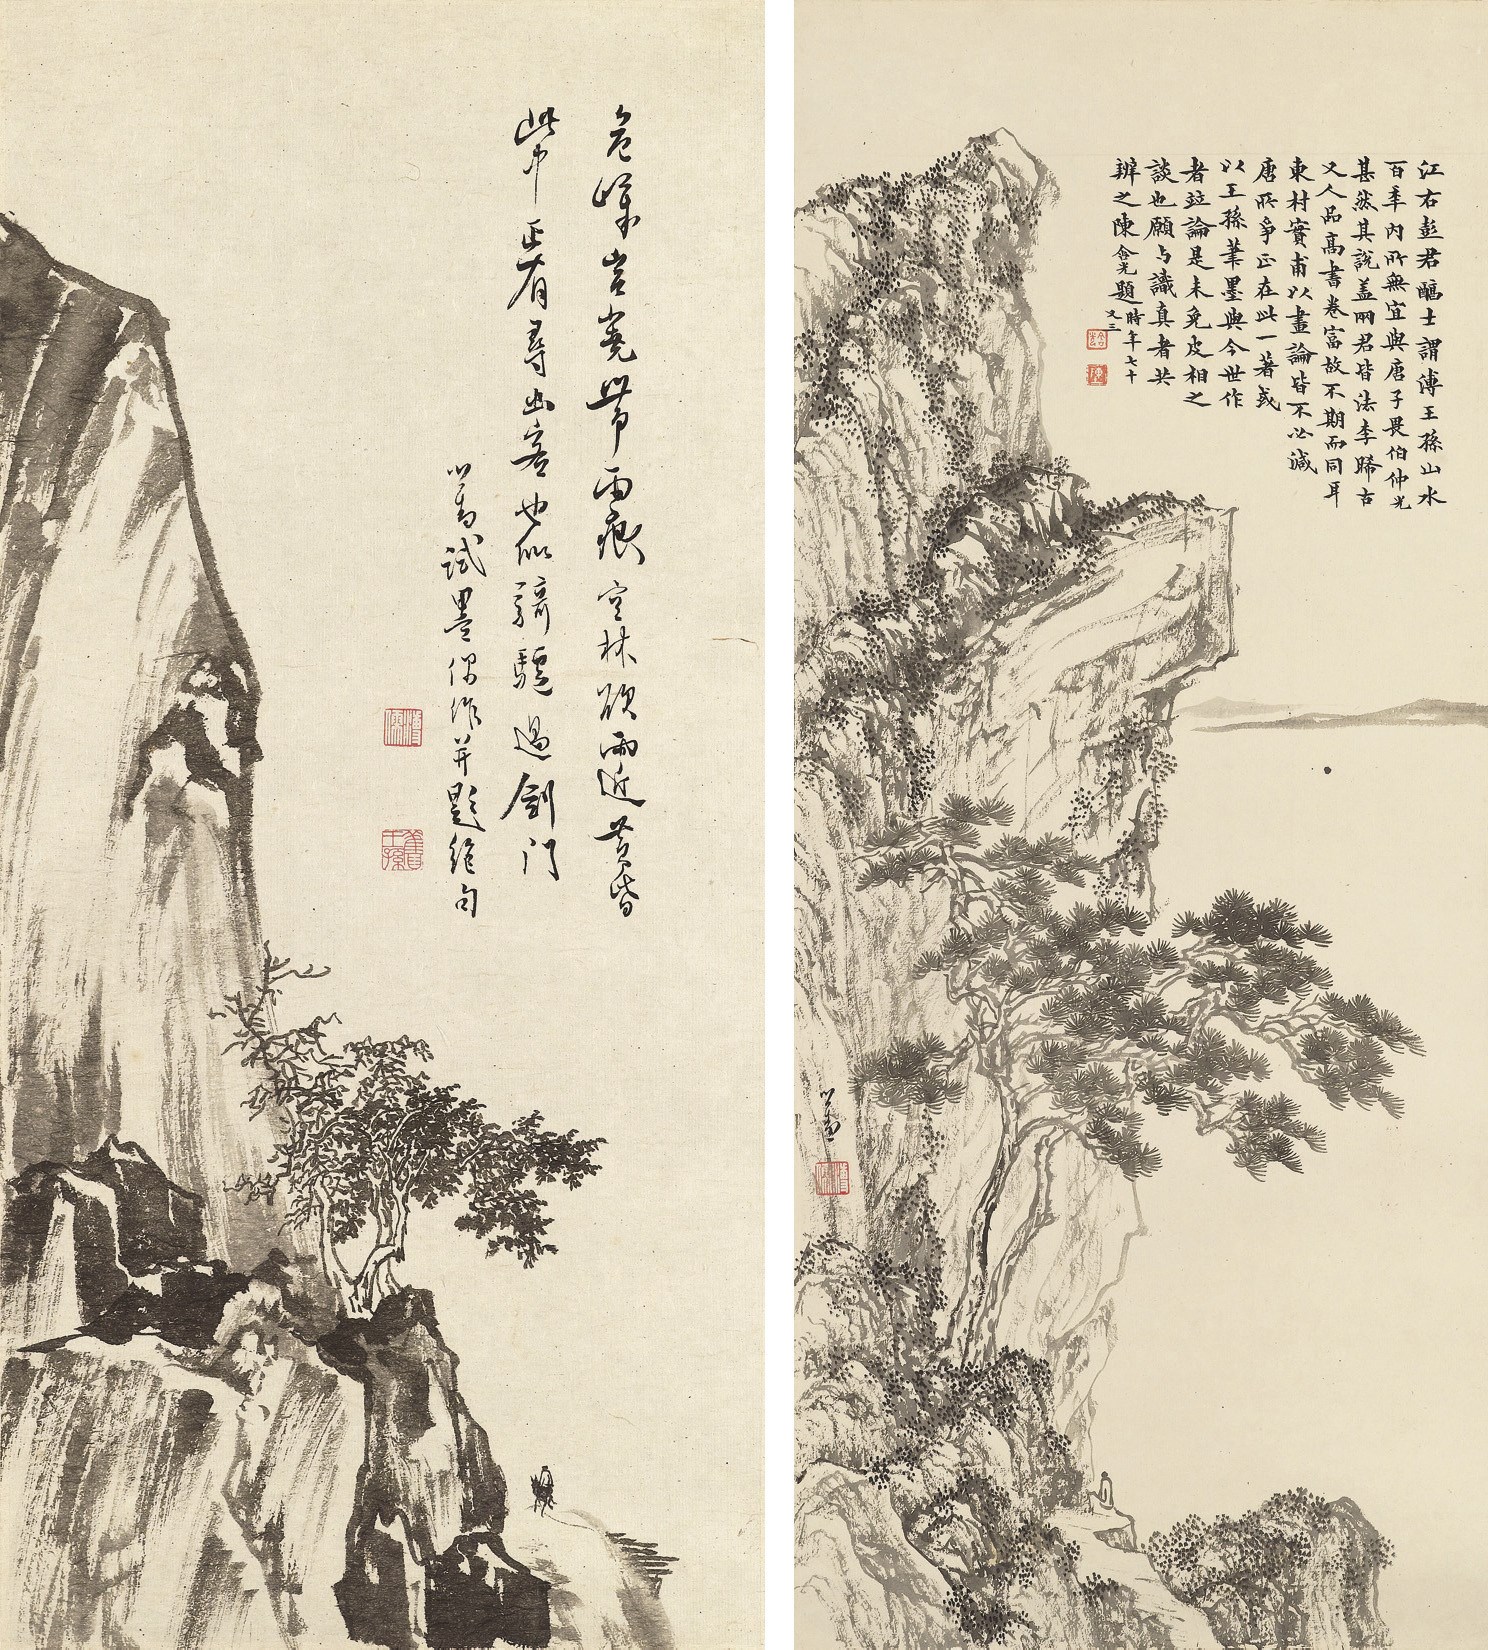 危峰岧堯帶雨痕空林欲雨近黃昏
此中正有尋幽客也似騎驢過劍門
心畬試墨偶作并題絕句
溥儒
舊王孫
江右彭君醕士謂溥王孫山水
百年內所無宜與唐子畏伯仲光
甚然其說蓋兩君皆法李晞古
又人品高書卷富故不期而同耳
東村實甫以畫論皆不必減
唐所爭正在此一著或
以王孫筆墨與今世作
者竝論是未免皮相之
談也願与識真者共
辨之陳含光題時年七十
又三
心畬
溥儒